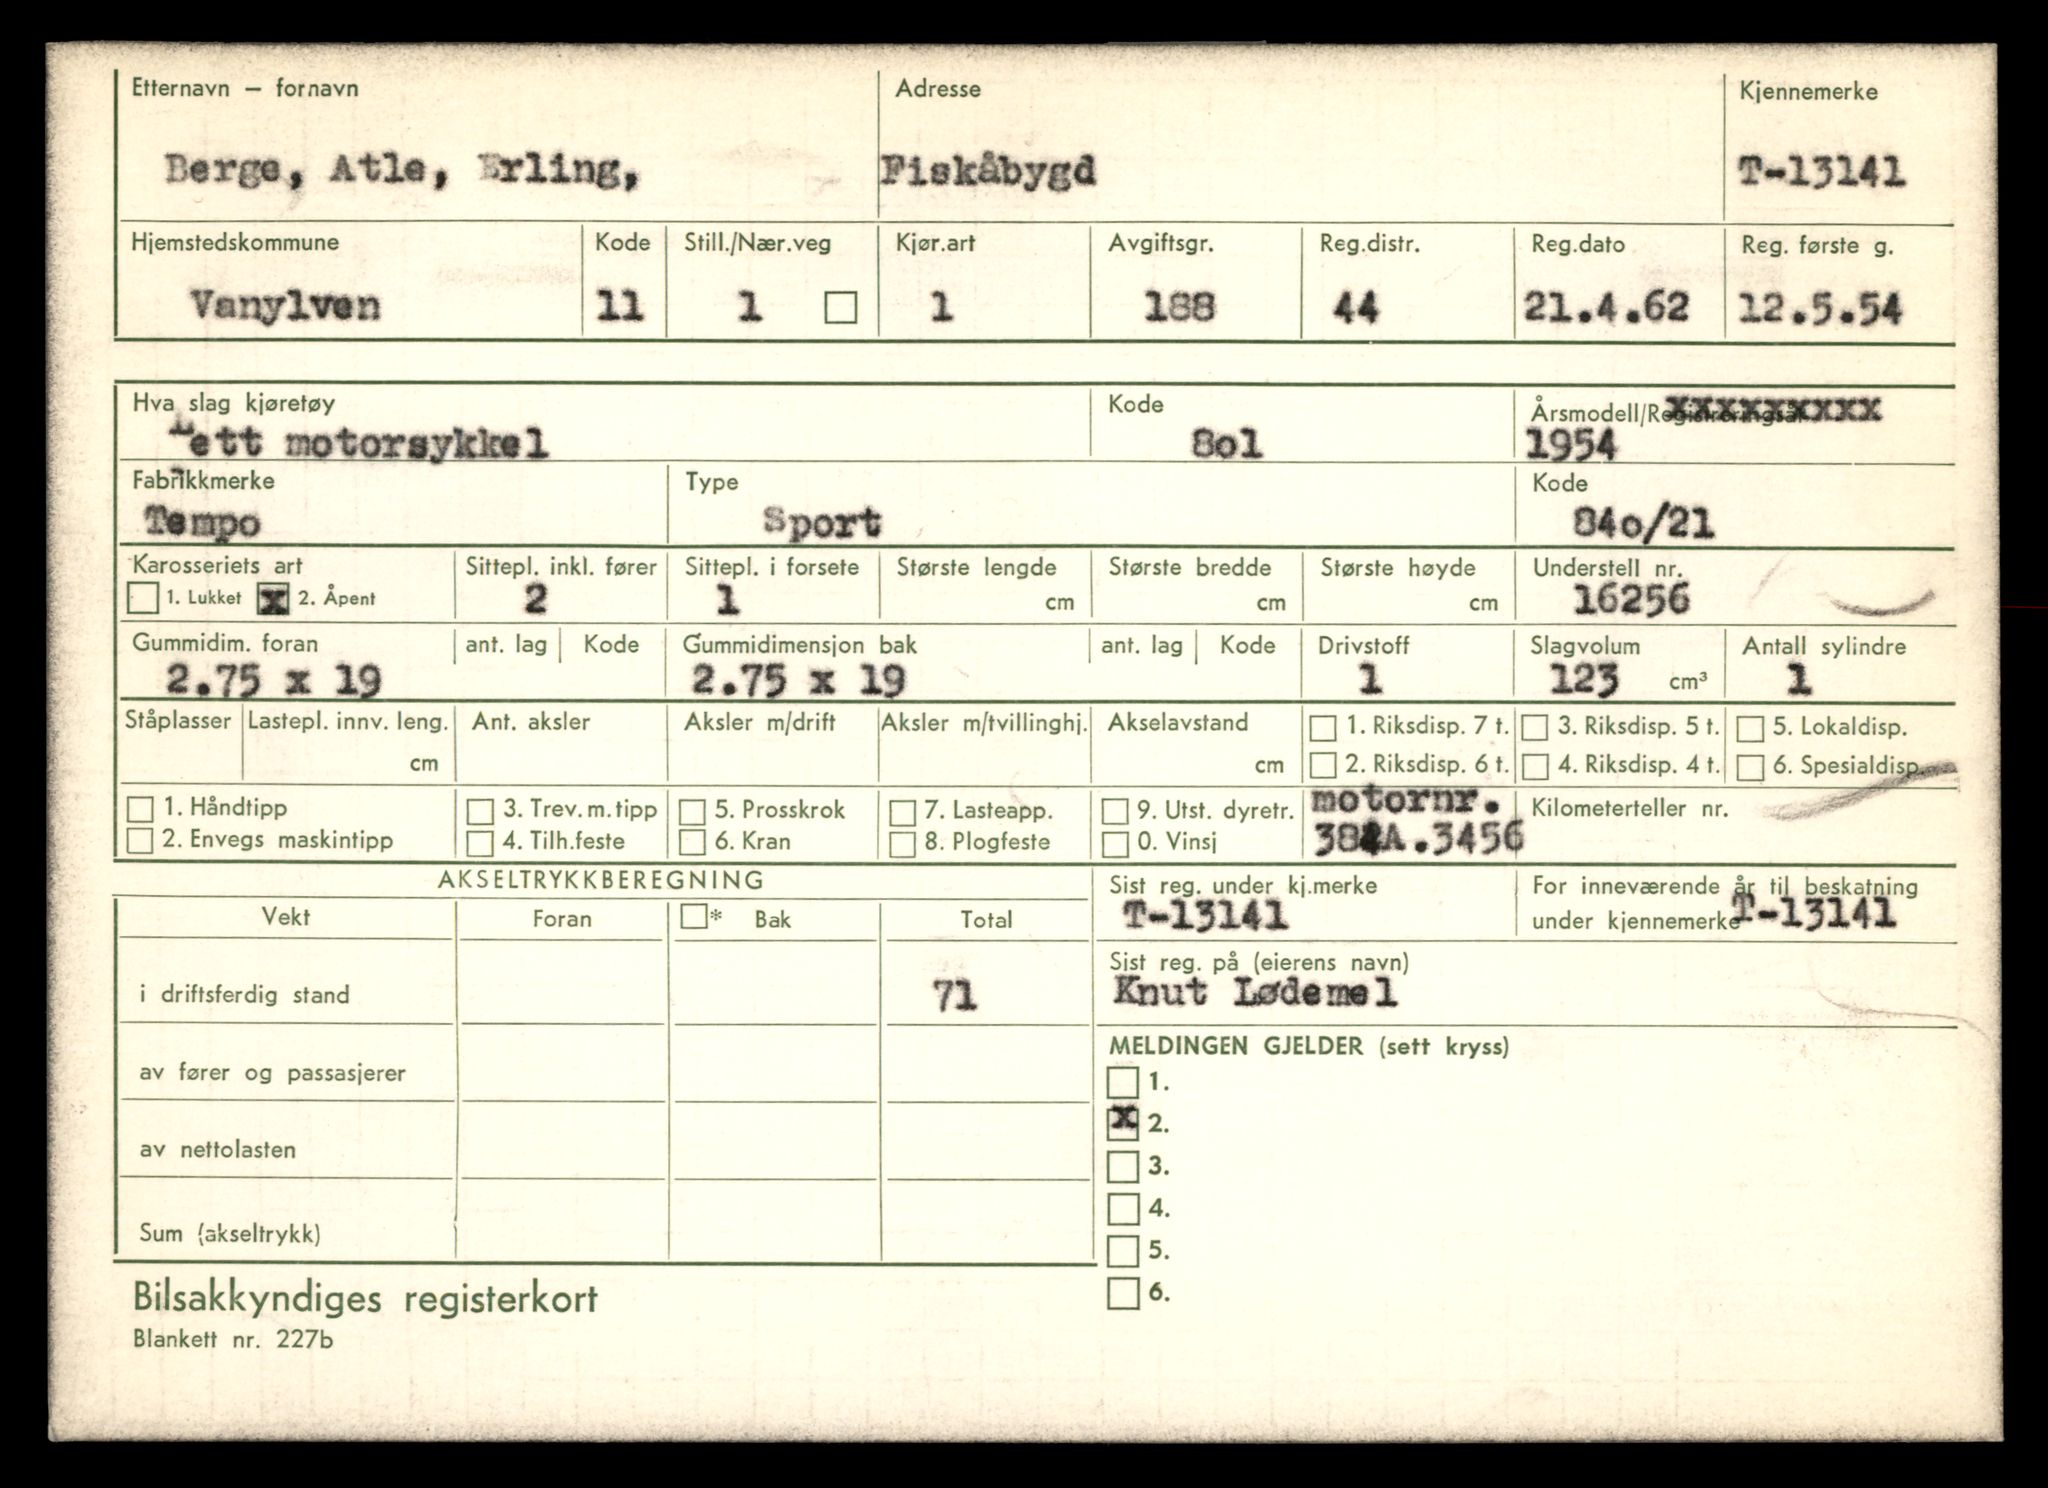 Etternavn – fornavn Adresse Kjennemerke
Berge, Atle, Erling, Fiskåbygd T-13141
Hjemstedskommune Kode Still./Nær.veg Kjør.art Avgiftsgr. Reg.distr. Reg.dato Reg. første g.
Vanylven 11 1 1 188 44 21.4.62 12.5.54
Hva slag kjøretøy Kode Årsmodell/Registreringsår
Lett motorsykkel 8o1 1954
Fabrikkmerke Type Kode
Tempo Sport 84o/21
Karosseriets art Sittepl. inkl. fører Sittepl. i forsete Største lengde Største bredde Største høyde Understell nr.
1. Lukket x 2. Åpent 2 1 cm cm cm 16256
Gummidim. foran ant. lag Kode Gummidimensjon bak ant. lag Kode Drivstoff Slagvolum Antall sylindre
2.75 x 19 2.75 x 19 1 123 cm³ 1
Ståplasser Lastepl. innv. leng. Ant. aksler Aksler m/drift Aksler m/tvillinghj. Akselavstand 1. Riksdisp. 7 t. 3. Riksdisp. 5 t. 5. Lokaldisp.
cm cm 2. Riksdisp. 6 t. 4. Riksdisp. 4 t. 6. Spesialdisp.
1. Håndtipp 3. Trev. m. tipp 5. Prosskrok 7. Lasteapp. 9. Utst. dyretr. motornr. Kilometerteller nr.
2. Envegs maskintipp 4. Tilh.feste 6. Kran 8. Plogfeste 0. Vinsj
AKSELTRYKKBEREGNING Sist reg. under kj.merke For inneværende år til beskatning
T-13141 under kjennemerke T-13141
Vekt Foran * Bak Total
Sist reg. på (eierens navn)
i driftsferdig stand 71 Knut Lødemel
MELDINGEN GJELDER (sett kryss)
av fører og passasjerer 1.
x 2.
av nettolasten 3.
4.
Sum (akseltrykk) 5.
6.
Bilsakkyndiges registerkort
Blankett nr. 227b